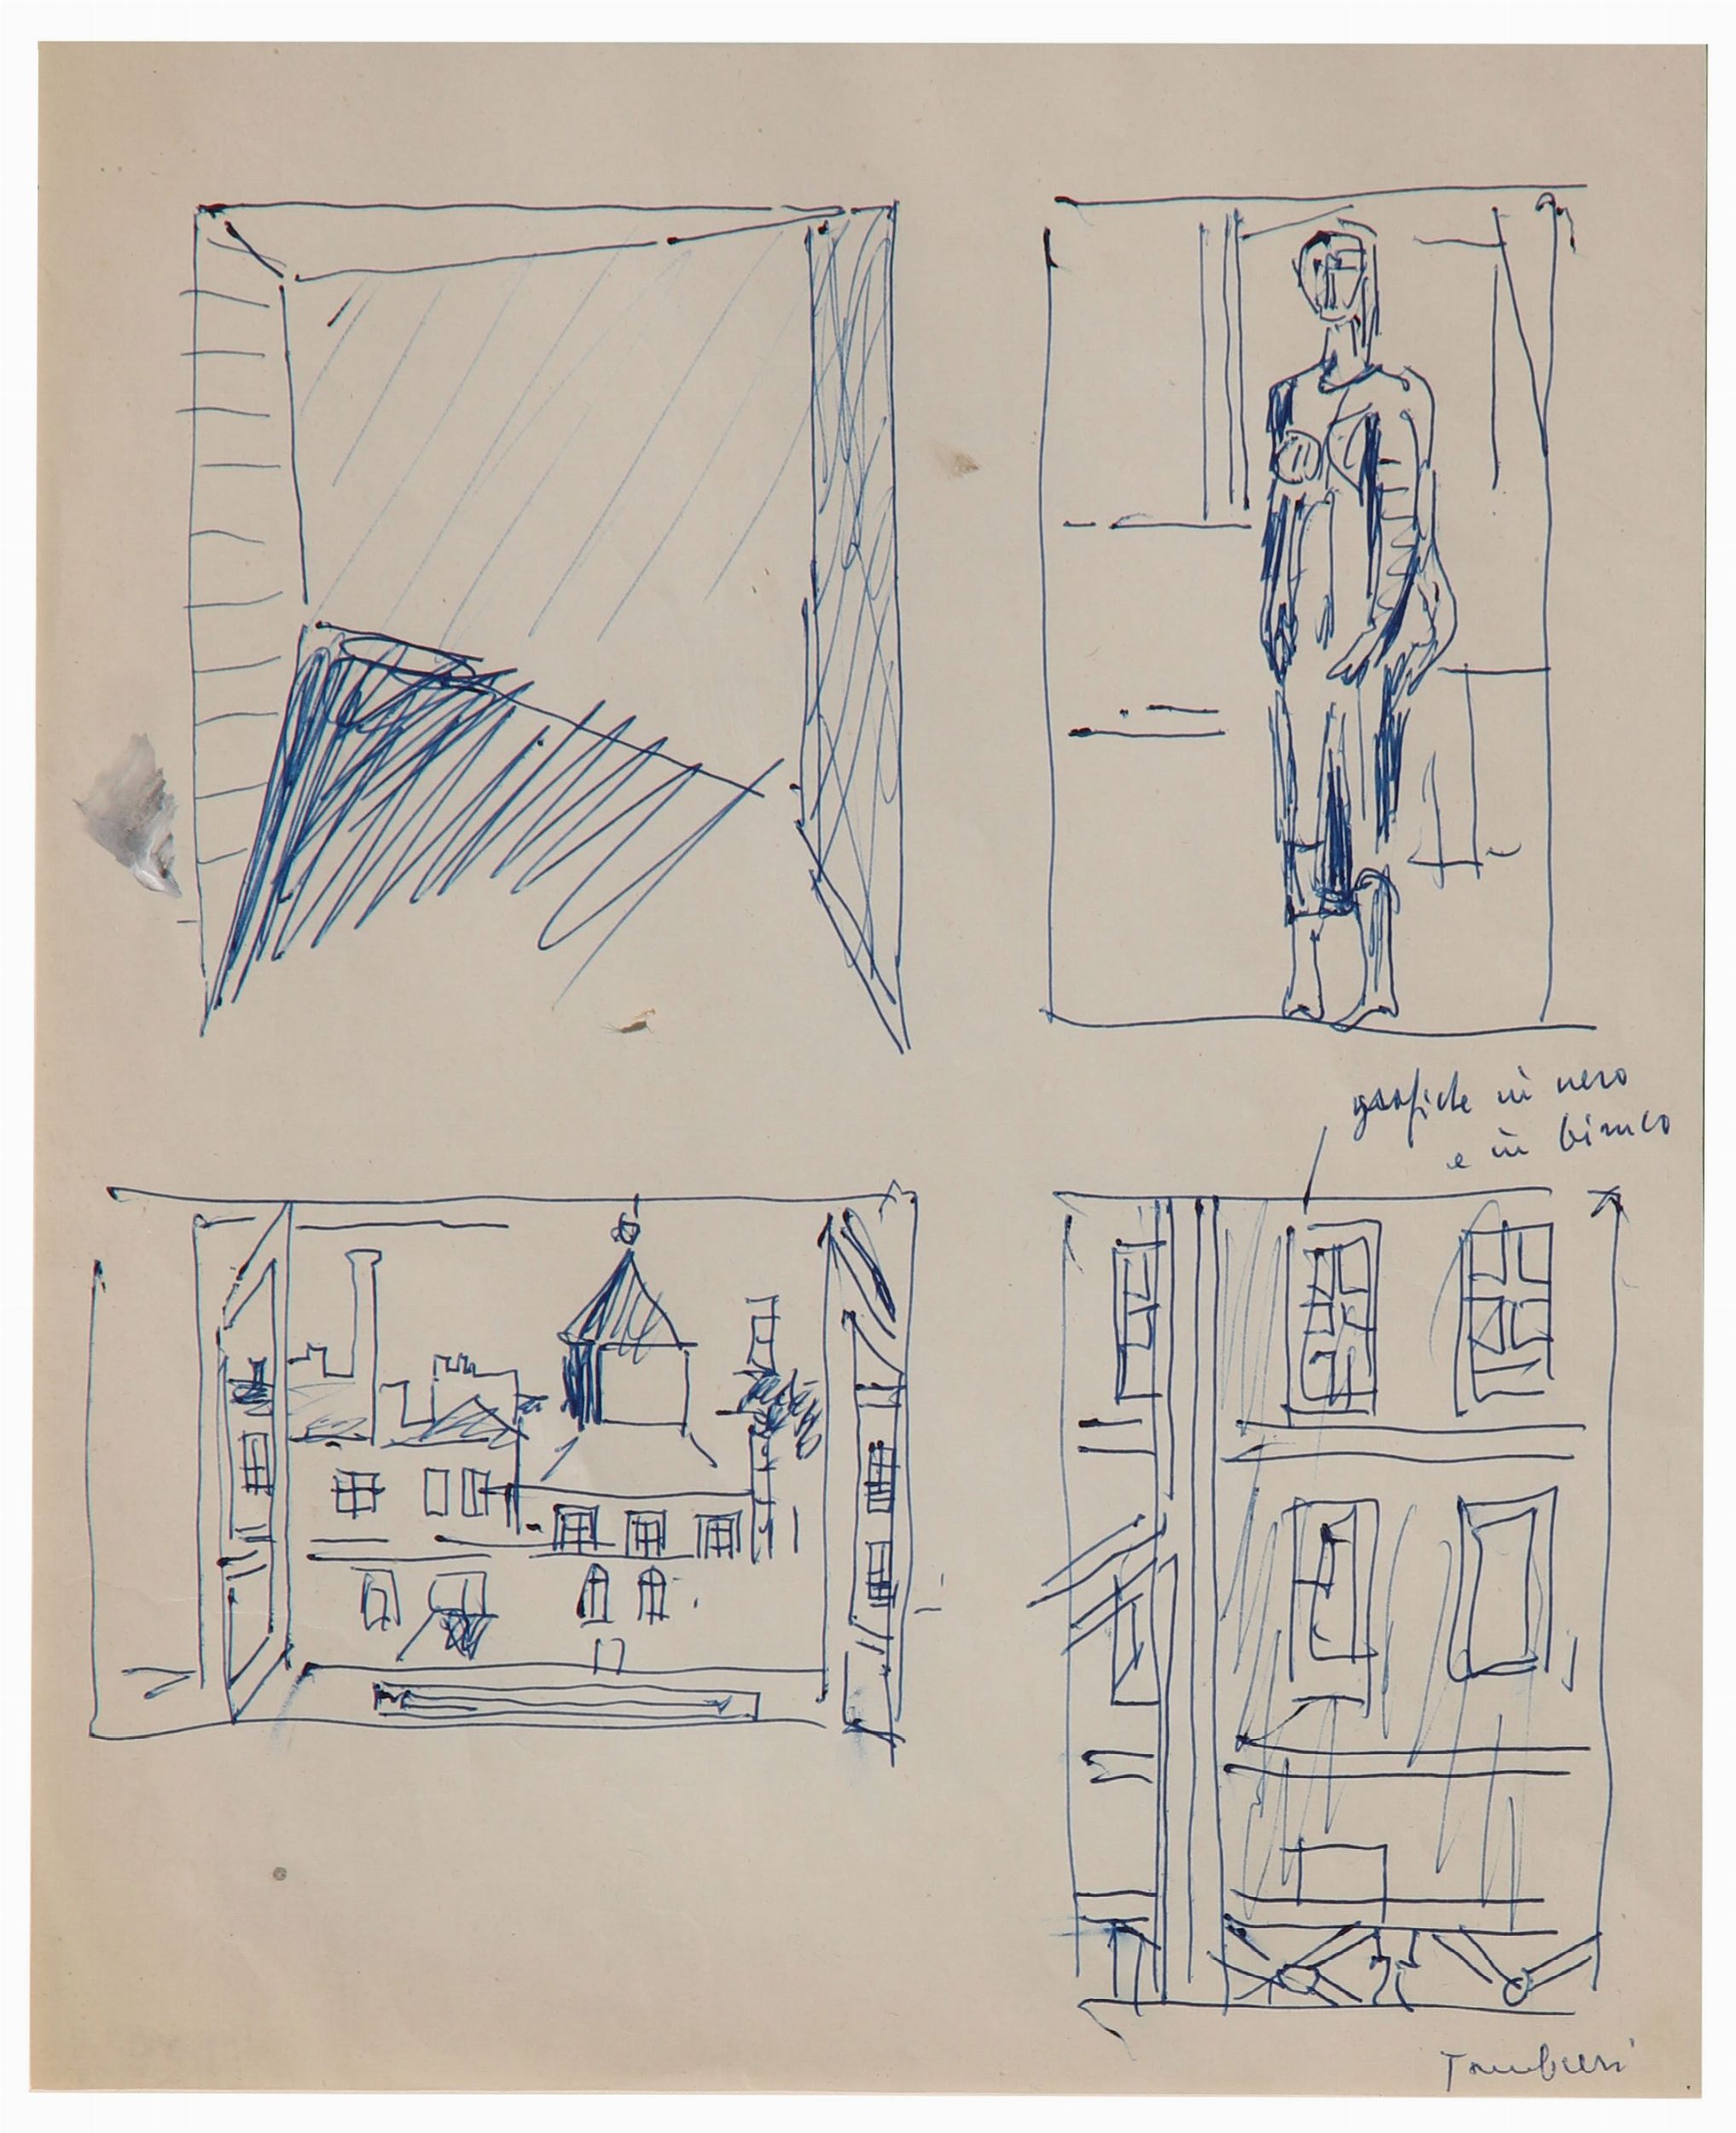 grafiche in nero
e in bianco
Tamburi